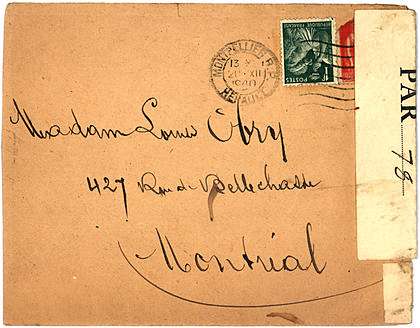 MONTPELLIER R.P.
13
21 XII
1940
HERAULT
REPUBLIQUE FRANCAISE
1F
POSTES
PAR 78
Madam Louis Obry
427 Rue de Bellechasse
Montréal